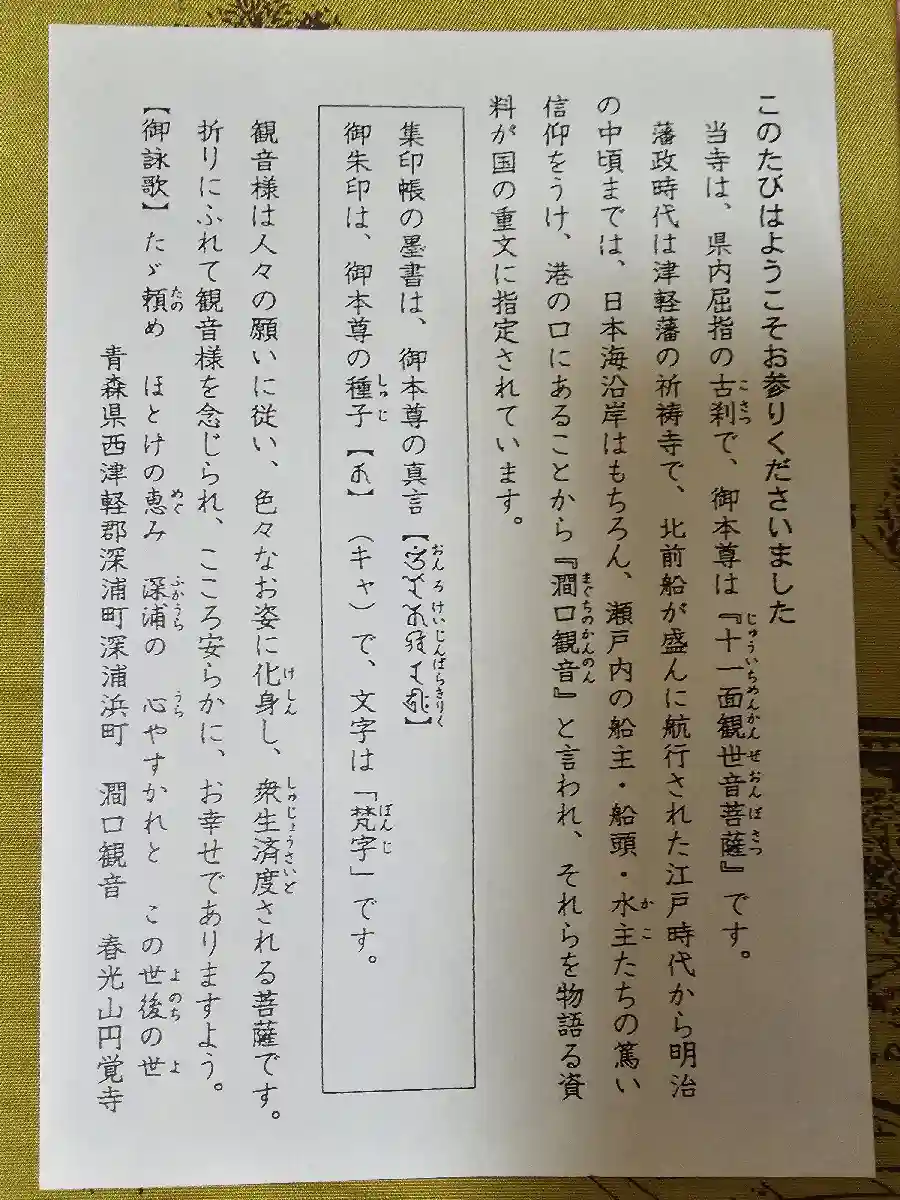 このたびはようこそお参りくださいました
当寺は、県内屈指の古刹で、御本尊は『十一面観世音菩薩』です。
こさつ
じゅういちめんかんぜおんぼさつ
藩政時代は津軽藩の祈祷寺で、北前船が盛んに航行された江戸時代から明治
の中頃までは、日本海沿岸はもちろん、瀬戸内の船主・船頭・水主たちの篤い
かこ
信仰をうけ、港の口にあることから『澗口観音』と言われ、それらを物語る資
まぐちのかんのん
料が国の重文に指定されています。
集印帳の墨書は、御本尊の真言【】
おんろけいじんばらきりく
御朱印は、御本尊の種子【】(キャ)で、文字は「梵字」です。
しゅじ
ぼんじ
観音様は人々の願いに従い、色々なお姿に化身し、衆生済度される菩薩です。
けしん
しゅじょうさいど
折りにふれて観音様を念じられ、こころ安らかに、お幸せでありますよう。
【御詠歌】たゞ頼め ほとけの恵み 深浦の 心やすかれと この世後の世
たの
めぐ
ふかうら
うら
よのち
よ
青森県西津軽郡深浦町深浦浜町 澗口観音 春光山円覚寺